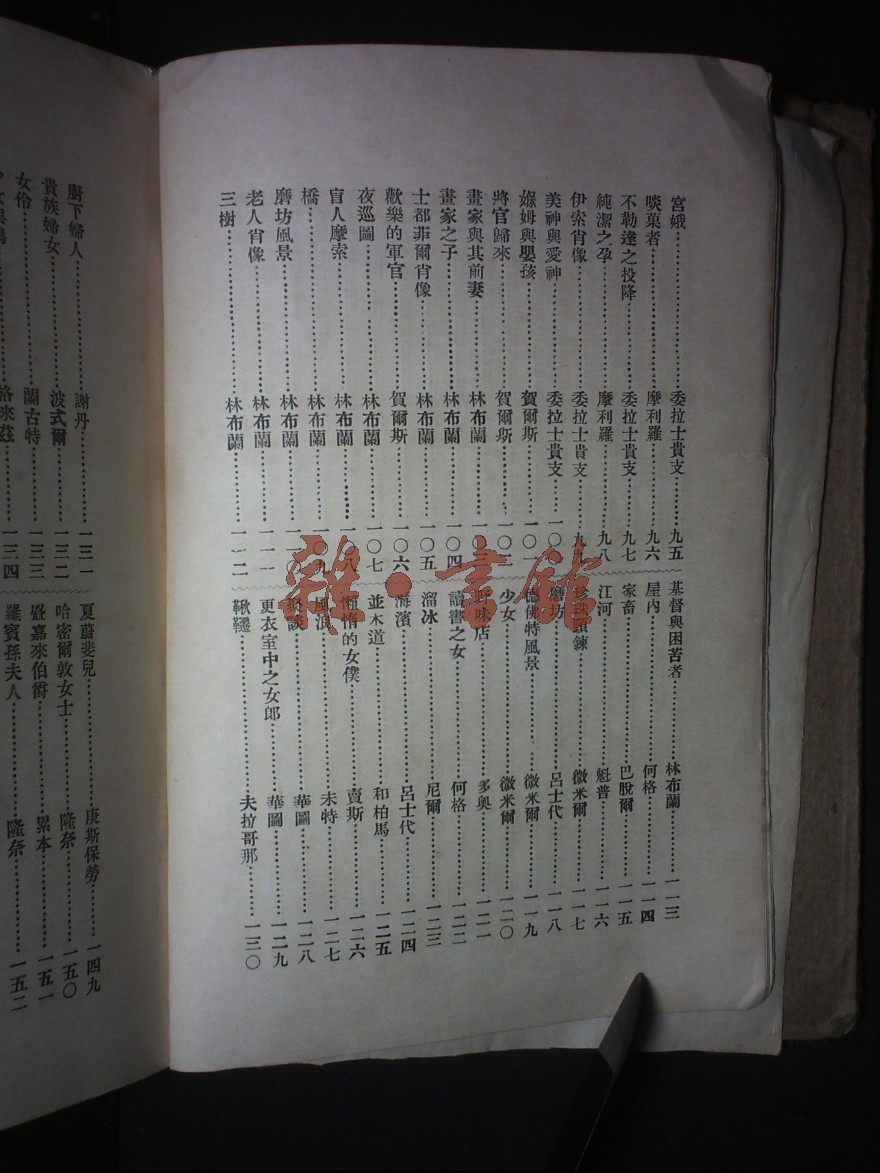 宮娥……委拉士貴支……九五
啖菓者……摩利羅……九六
不勒達之投降……委拉士貴支……九七
純潔之孕……摩利羅……九八
伊索肖像……委拉士貴支……九九
美神與愛神……委拉士貴支……一〇〇
媬姆與嬰孩……賀爾斯……一〇一
將官歸來……賀爾斯……一〇二
畫家與其前妻……林布蘭……一〇三
畫家之子……林布蘭……一〇四
士都菲爾肖像……林布蘭……一〇五
歡樂的軍官……賀爾斯……一〇六
夜巡圖……林布蘭……一〇七
盲人摩索……林布蘭……一〇八
橋……林布蘭……一〇九
磨坊風景……林布蘭……一一〇
老人肖像……林布蘭……一一一
三樹……林布蘭……一一二
基督與困苦者……林布蘭……一一三
屋內……何格……一一四
家畜……巴脫爾……一一五
江河……魁普……一一六
珍珠頸鍊……微米爾……一一七
磨坊……呂士代……一一八
德佛特風景……微米爾……一一九
少女……微米爾……一二〇
野味店……多奧……一二一
讀書之女……何格……一二二
溜冰……尼爾……一二三
海濱……呂士代……一二四
並木道……和柏馬……一二五
懶惰的女僕……賣斯……一二六
風浪……未特……一二七
聚談……華圖……一二八
更衣室中之女郎……華圖……一二九
鞦韆……夫拉哥那……一三〇
廚下婦人……謝丹……一三一
貴族婦女……波式爾……一三二
女伶……蘭古特……一三三
格來茲……一三四
夏蔚斐兒……庚斯保勞……一四九
哈密爾敦女士……隆奈……一五〇
盛嘉來伯爵……累本……一五一
羅賓孫夫人……隆奈……一五二
雜·書館